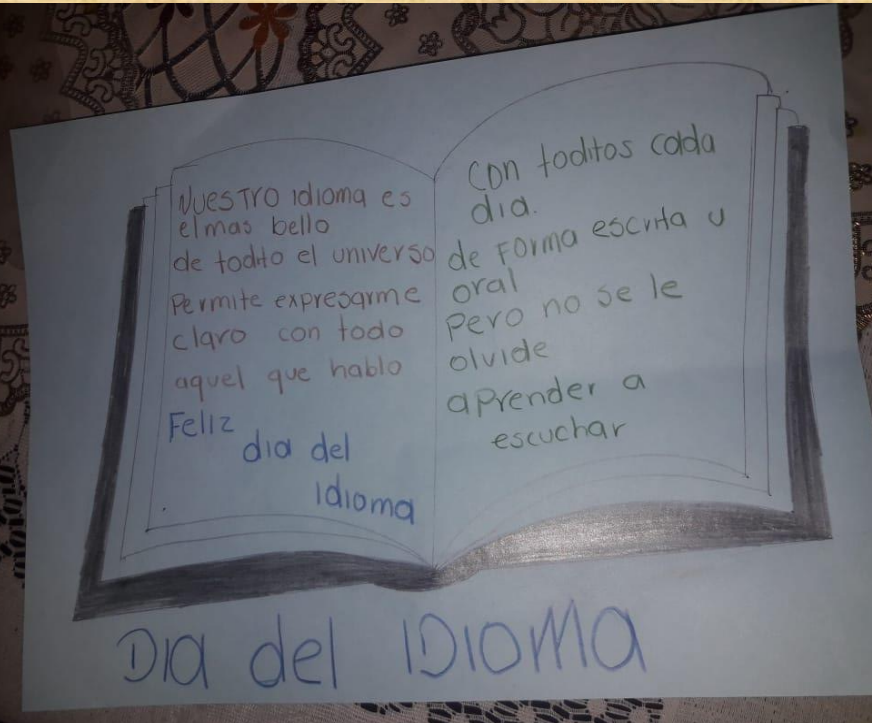 Nuestro idioma es
el mas bello
de todito el universo
Permite expresarme
claro con todo
aquel que hablo
Feliz
dia del
idioma
Con toditos cada
dia.
de Forma escrita y
oral
Pero no se le
olvide
aprender a
escuchar
DIA del IDIOMA